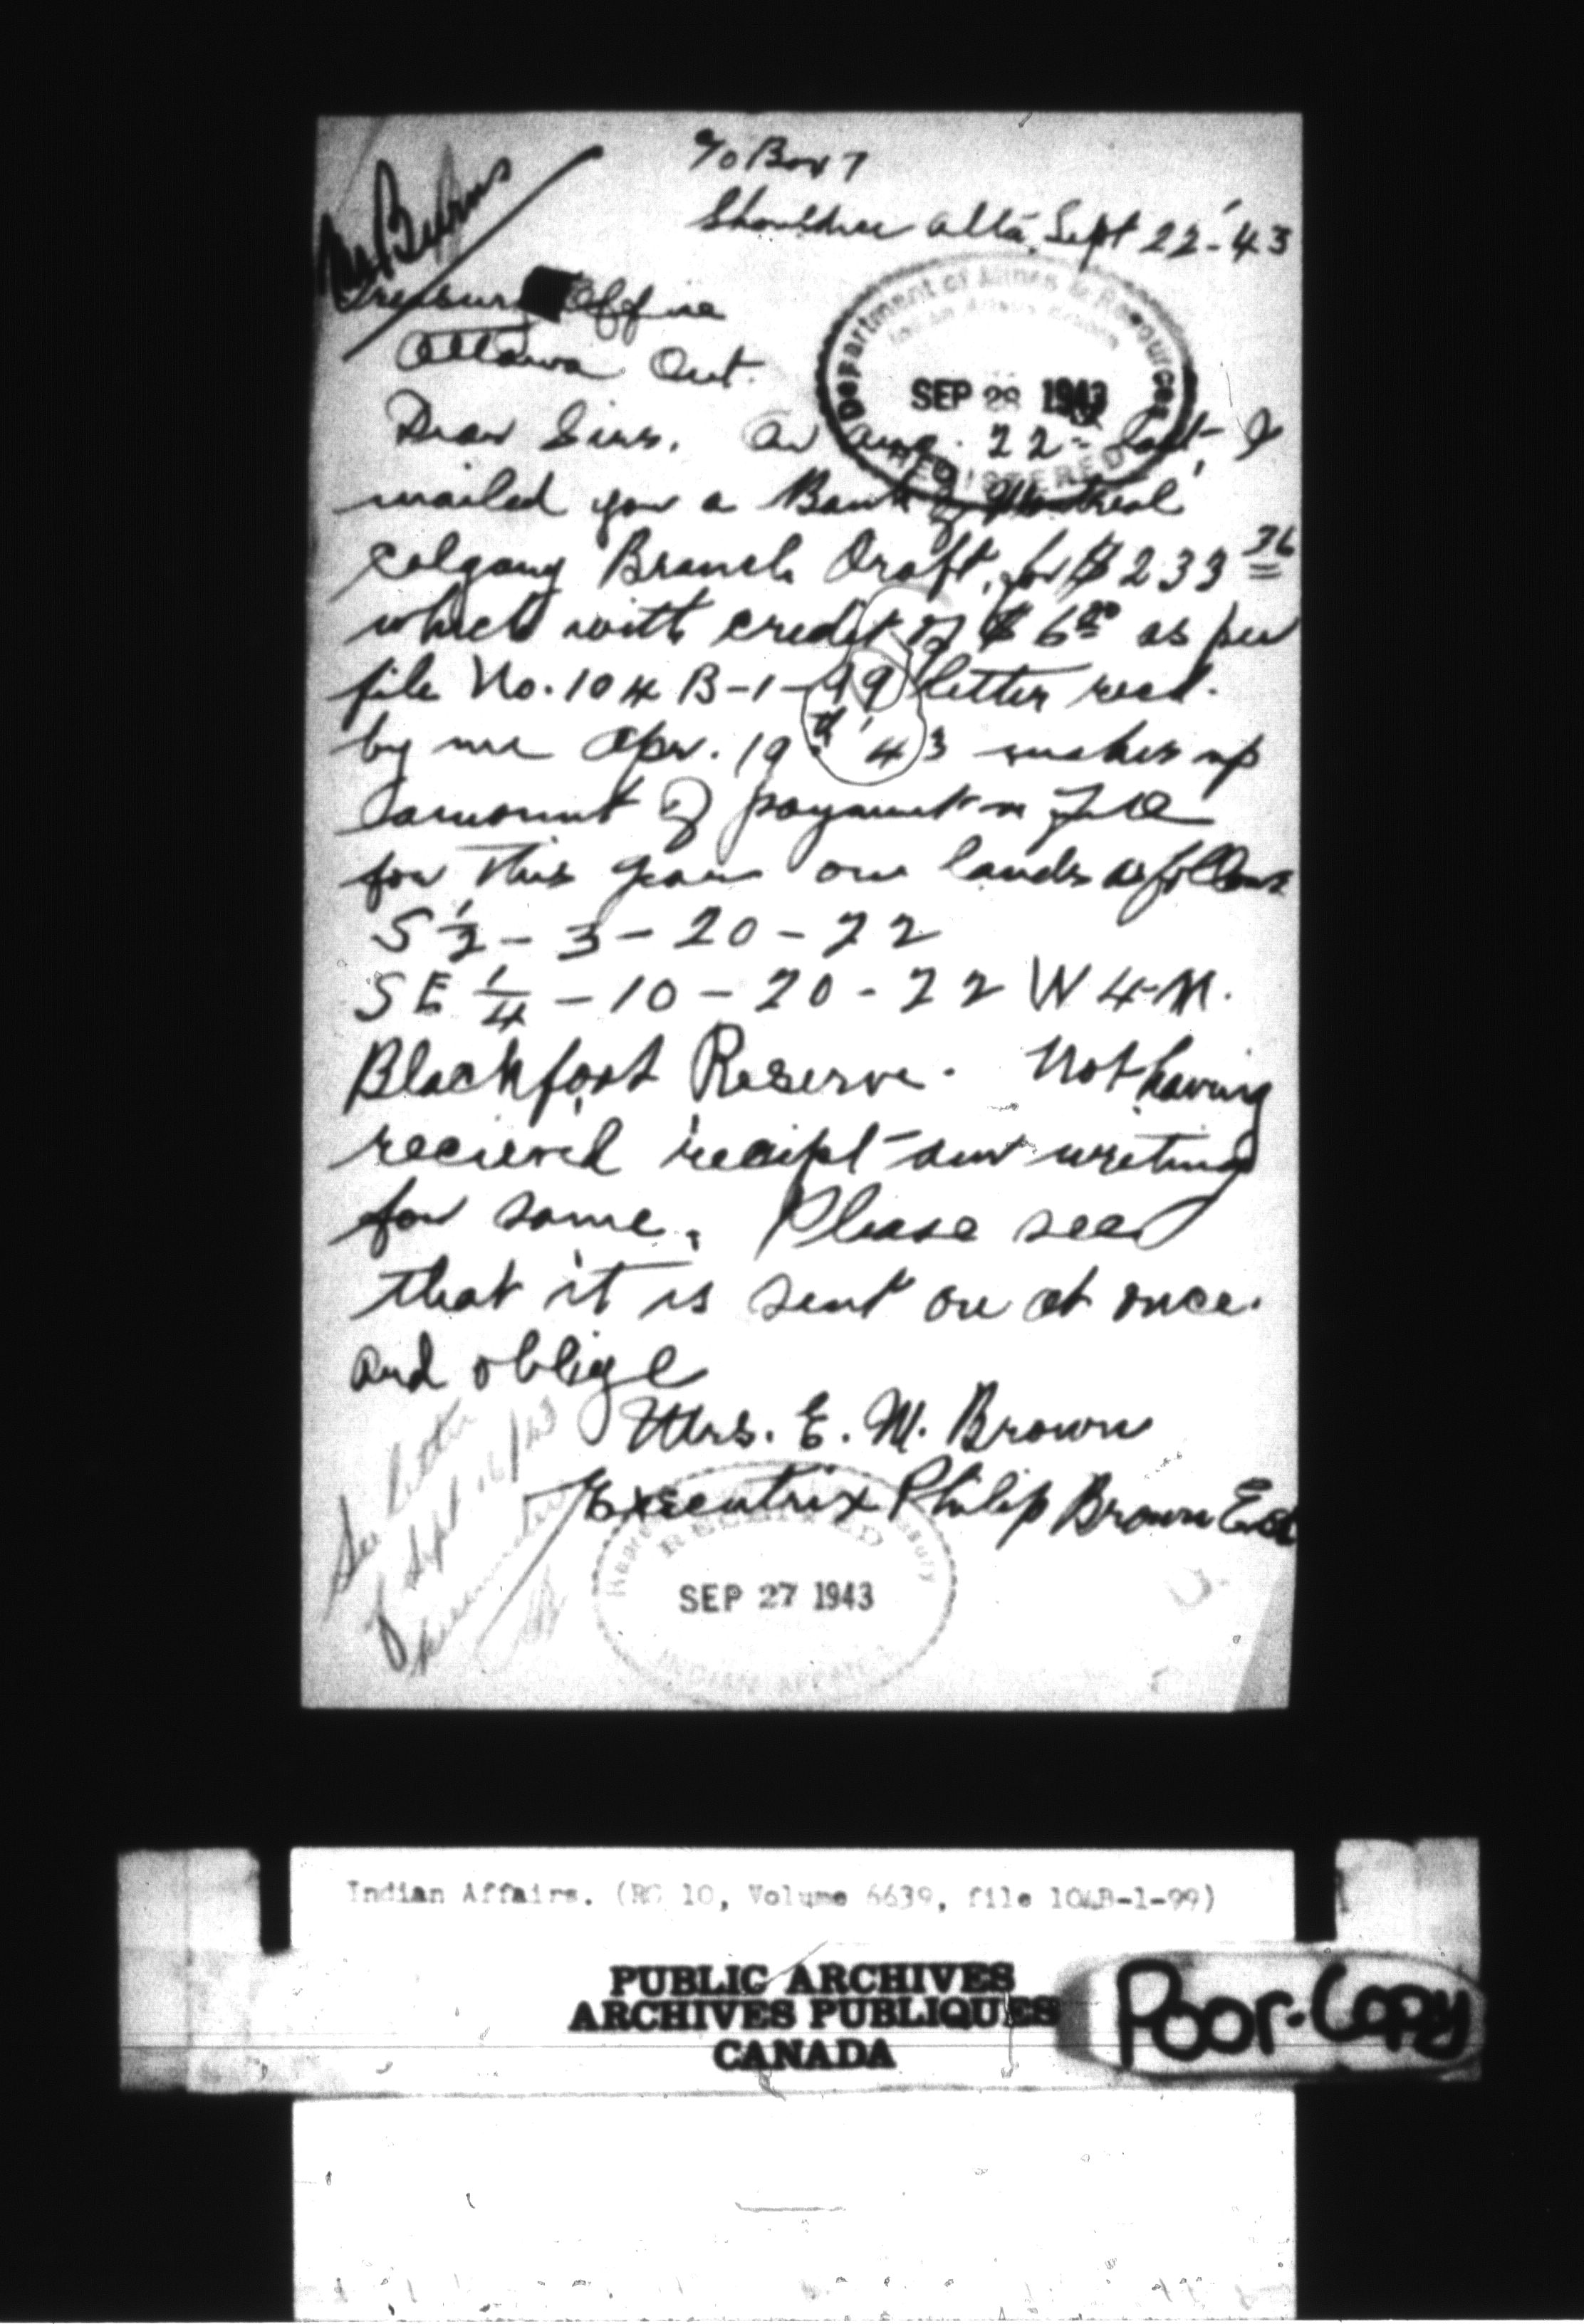 c/o Box 7
Shouldice Alta. Sept 22-'43
Mr Burns
Treasury Office
Ottawa Ont.
Department of Mines & Resources
Indian Affairs Branch
SEP 28 1943
REGISTERED
Dear Sirs. On Aug. 22- last, I
mailed you a Bank of Montreal
Calgary Branch Draft, for $233 36
which with credit of $6 as per
file No. 104 B-1-99 letter recd.
by me Apr. 19th '43 makes up
amount of payment
for this year on lands as follows
S 1/2 - 3 - 20 - 22
SE 1/4 - 10 - 20 - 22 W 4 M.
Blackfoot Reserve. Not having
recieved reciept am writing
for same. Please see
that it is sent on at once.
and oblige
Mrs. E. M. Brown
Executrix Philip Brown Est
See letter
of Sept 16/43
RECEIVED
SEP 27 1943
INDIAN AFFAIRS
Indian Affairs. (RG 10, Volume 6639, file 104B-1-99)
PUBLIC ARCHIVES
ARCHIVES PUBLIQUES
CANADA
Poor-Copy